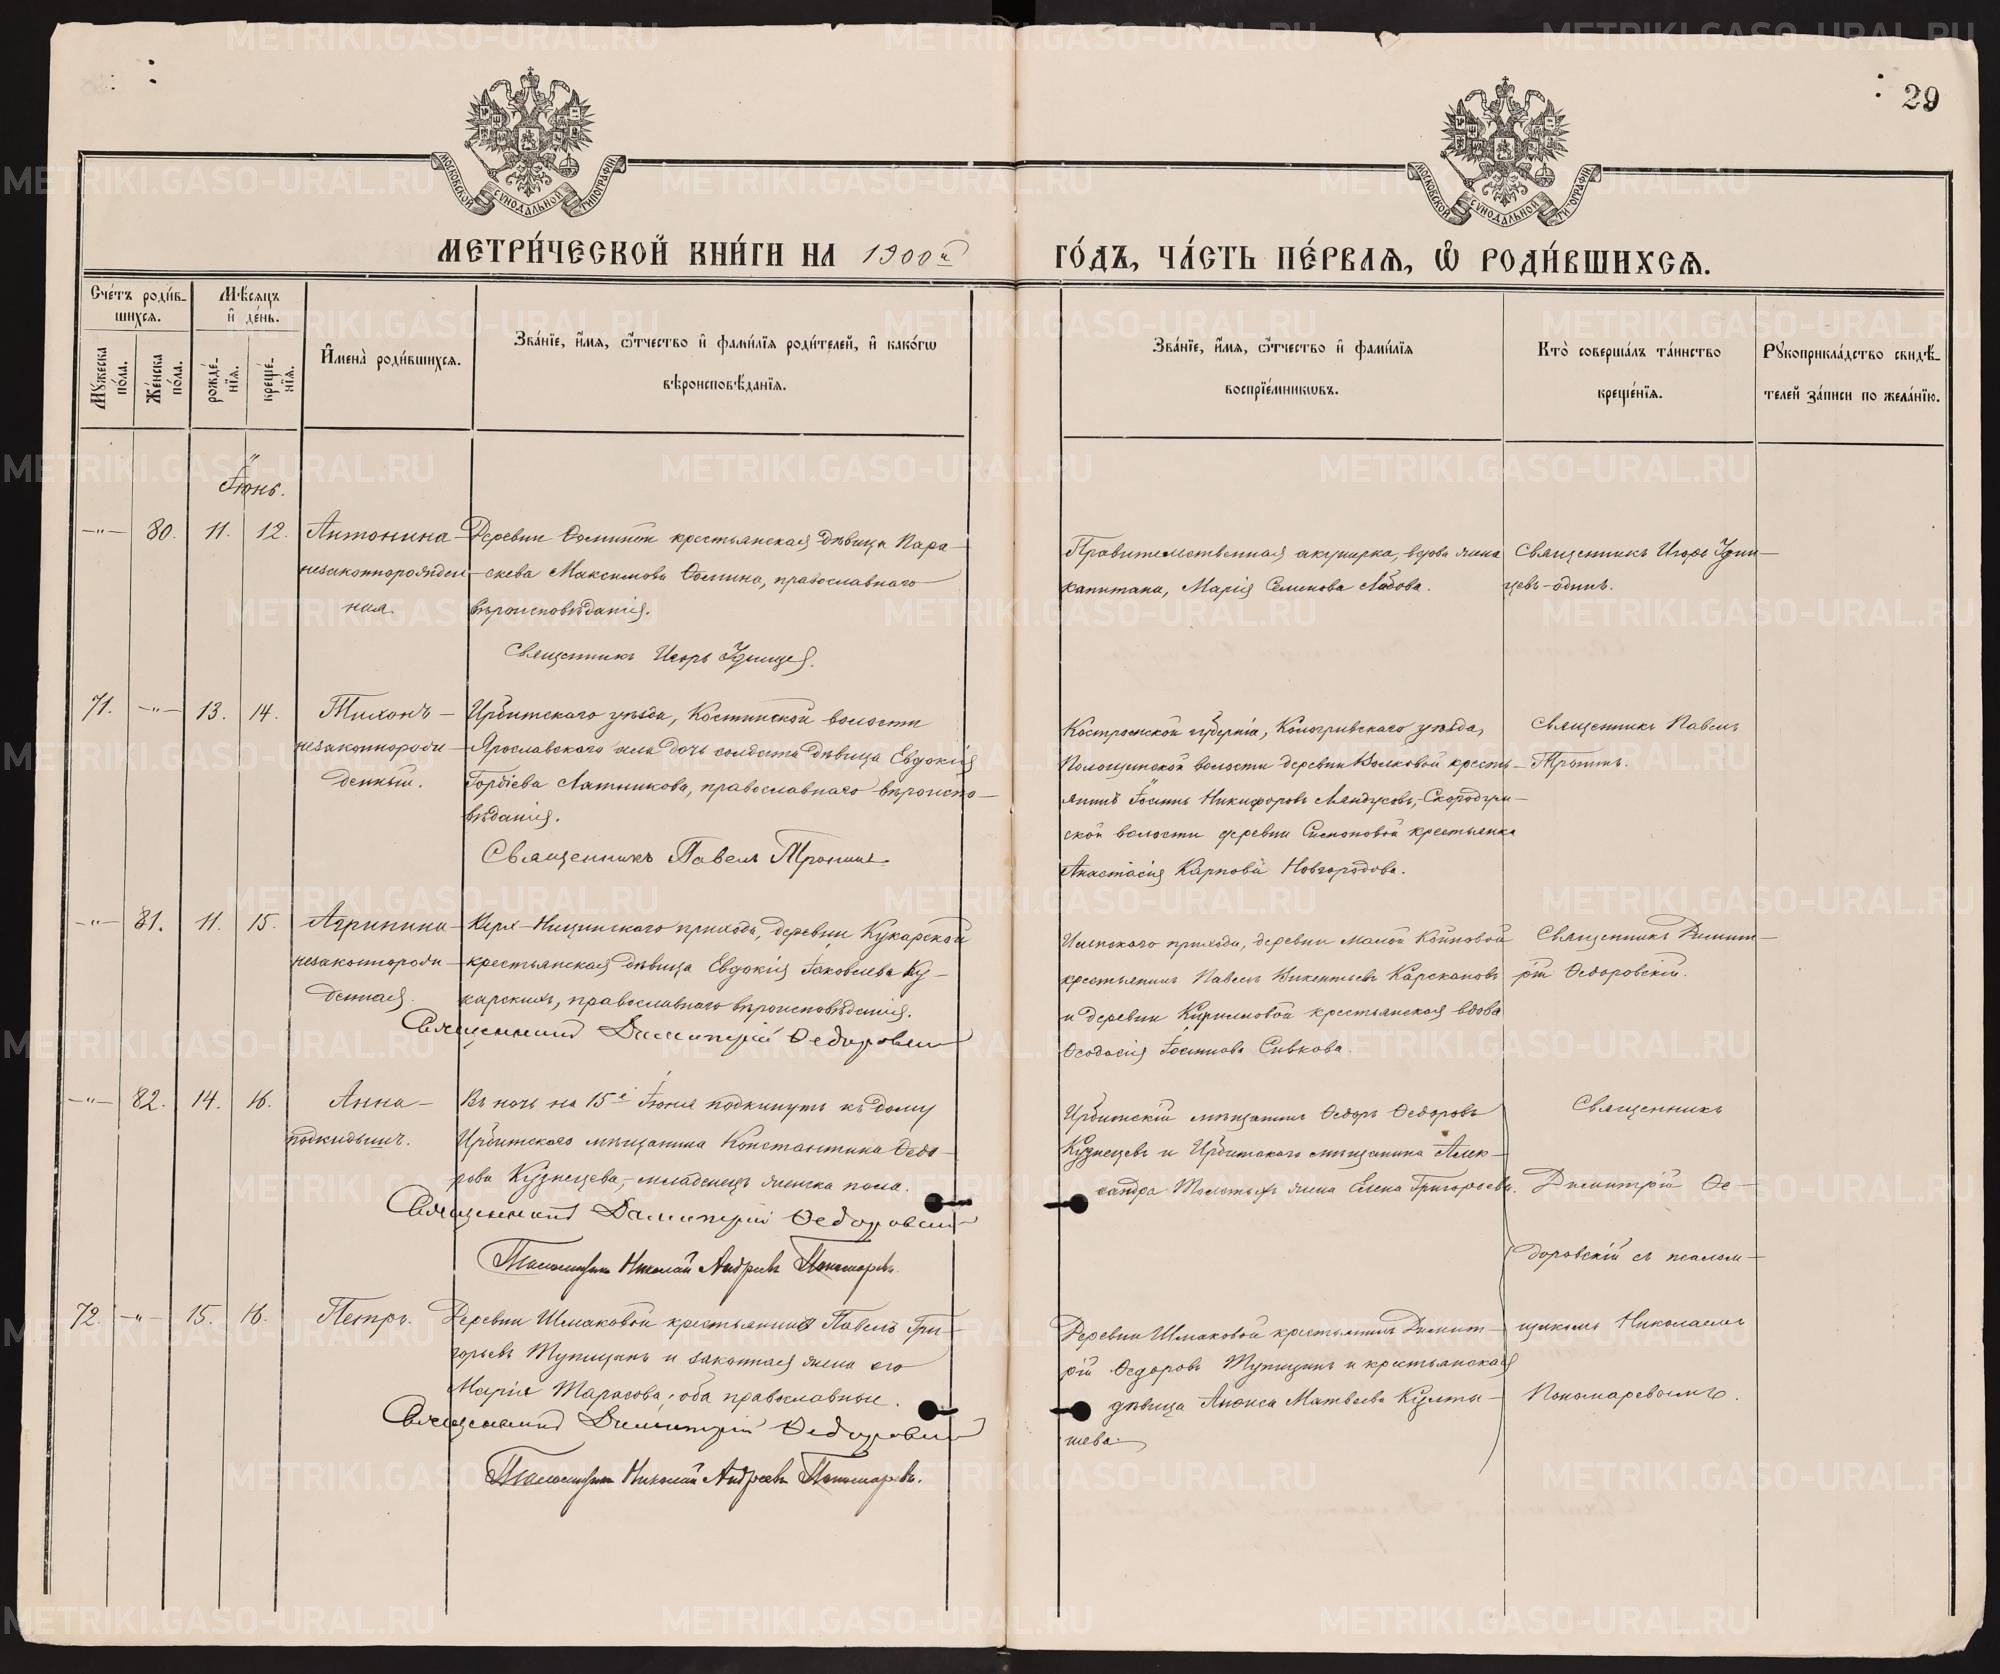 29
МОСКОВСКОЙ СѴНОДАЛЬНОЙ ТИПОГРАФІИ
МОСКОВСКОЙ СѴНОДАЛЬНОЙ ТИПОГРАФІИ
МЕТРИ́ЧЕСКОЙ КНИ́ГИ НА 1900й ГО́ДЪ, ЧА́СТЬ ПЕ́РВАѦ, Ѡ҆ РОДИ́ВШИХСѦ.
Сче́тъ роди́в-
шихсѧ.
Мѣ́сѧцъ
и҆ де́нь.
Мꙋ́жеска
по́ла.
Же́нска
по́ла.
рожде́-
нїѧ.
креще́-
нїѧ.
И҆мена̀ роди́вшихсѧ.
Зва́нїе, и҆́мѧ, ѻ҆́тчество и҆ фами́лїѧ роди́телей, и҆ како́гѡ
вѣроисповѣ́данїѧ.
Зва́нїе, и҆́мѧ, ѻ҆́тчество и҆ фами́лїѧ
воспрїе́мникѡвъ.
Кто̀ соверша́лъ та́инство
креще́нїѧ.
Рꙋкоприкла́дство свидѣ́-
телей за́писи по жела́нїю.
Іюнь.
—"— 80. 11. 12. Антонина
незаконнорожден-
ная.
Деревни Ѳоминой крестьянская дѣвица Пара-
скева Максимова Ѳомина, православнаго
вѣроисповѣданія.
Священникъ Игорь
Правительственная акушерка, вдова жена
капитана, Марія Семенова
Священникъ Игорь
цевъ-одинъ.
71. —"— 13. 14. Тихонъ —
незаконнорож-
денный.
Ирбитскаго уѣзда, Костинской волости
Ярославскаго села дочь солдата дѣвица Евдокія
Гордіева Лятникова, православнаго вѣроиспо-
вѣданія.
Священникъ Павелъ Тронинъ.
Костромской губерніи, Кологривскаго уѣзда,
волости деревни Волковой кресть-
янинъ Іоаннъ Никифоровъ Скородум-
ской волости деревни крестьянка
Анастасія Карпова Новгородова.
Священникъ Павелъ
Тронинъ.
—"— 81. 11. 15. Агрипина
незаконнорож-
денная.
Верх-Ницинскаго прихода, деревни Кукарской
крестьянская дѣвица Евдокія Іаковлева Ку-
карскихъ, православнаго вѣроисповѣданія.
Священникъ Димитрій Ѳедоровскій
прихода, деревни Малой Койновой
крестьянинъ Павелъ Викентьевъ
и деревни Кириловой крестьянская вдова
Ѳеодосія Іоаннова Сивкова.
Священникъ Димит-
рій Ѳедоровскій.
—"— 82. 14. 16. Анна —
подкидышъ.
Въ ночь на 15е Іюня подкинутъ къ дому
Ирбитскаго мѣщанина Константина Ѳедо-
рова Кузнецева, младенецъ женска пола.
Священникъ Димитрій Ѳедоровскій
Псаломщикъ Николай Андреевъ Пономаревъ.
Ирбитскій мѣщанинъ Ѳедоръ Ѳедоровъ
Кузнецевъ и Ирбитскаго мѣщанина Алек-
сандра Толстыхъ жена Елена Григорьева.
Священникъ
Димитрій Ѳе-
доровскій съ псалом-
щикомъ Николаемъ
Пономаревымъ.
72. —"— 15. 16. Петръ.
Деревни Шмаковой крестьянинъ Павелъ Гри-
горьевъ Тупицынъ и законная жена его
Марія Тарасова; оба православные.
Священникъ Димитрій Ѳедоровскій
Псаломщикъ Николай Андреевъ Пономаревъ.
Деревни Шмаковой крестьянинъ Димит-
рій Ѳедоровъ Тупицынъ и крестьянская
дѣвица Анѳиса Матвѣева Култы-
шева.
METRIKI.GASO-URAL.RU